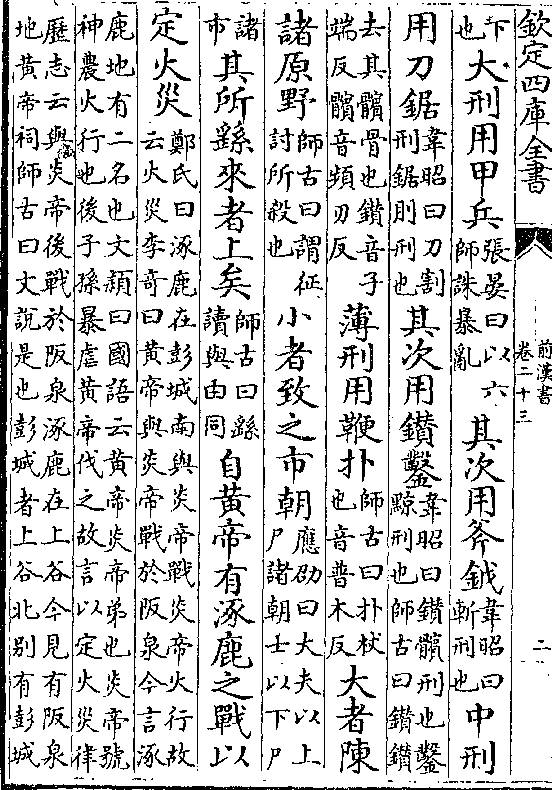 欽定四庫全書
前漢書
卷二十三
二
下
也
大刑用甲兵
張晏曰以六
師誅暴亂
其次用斧鉞
韋昭曰
斬刑也
中刑
用刀鋸
韋昭曰刀割
刑鋸刖刑也
其次用鑽鑿
韋昭曰鑽髕刑也鑿
黥刑也師古曰鑽鑽
去其髕骨也鑽音子
端反髕音頻刃反
薄刑用鞭扑
師古曰扑杖
也音普木反
大者陳
諸原野
師古曰謂征
討所殺也
小者致之市朝
應劭曰大夫以上
尸諸朝士以下尸
諸
市
其所繇來者上矣
師古曰繇
讀與由同
自黃帝有涿鹿之戰以
定火災
鄭氏曰涿鹿在彭城南與炎帝戰炎帝火行故
云火災李奇曰黃帝與炎帝戰於阪泉今言涿
鹿地有二名也文穎曰國語云黃帝炎帝弟也炎帝號
神農火行也後子孫暴虐黃帝伐之故言以定火災律
歷志云與炎帝後戰於阪泉涿鹿在上谷今見有阪泉
地黃帝祠師古曰文說是也彭城者上谷北别有彭城